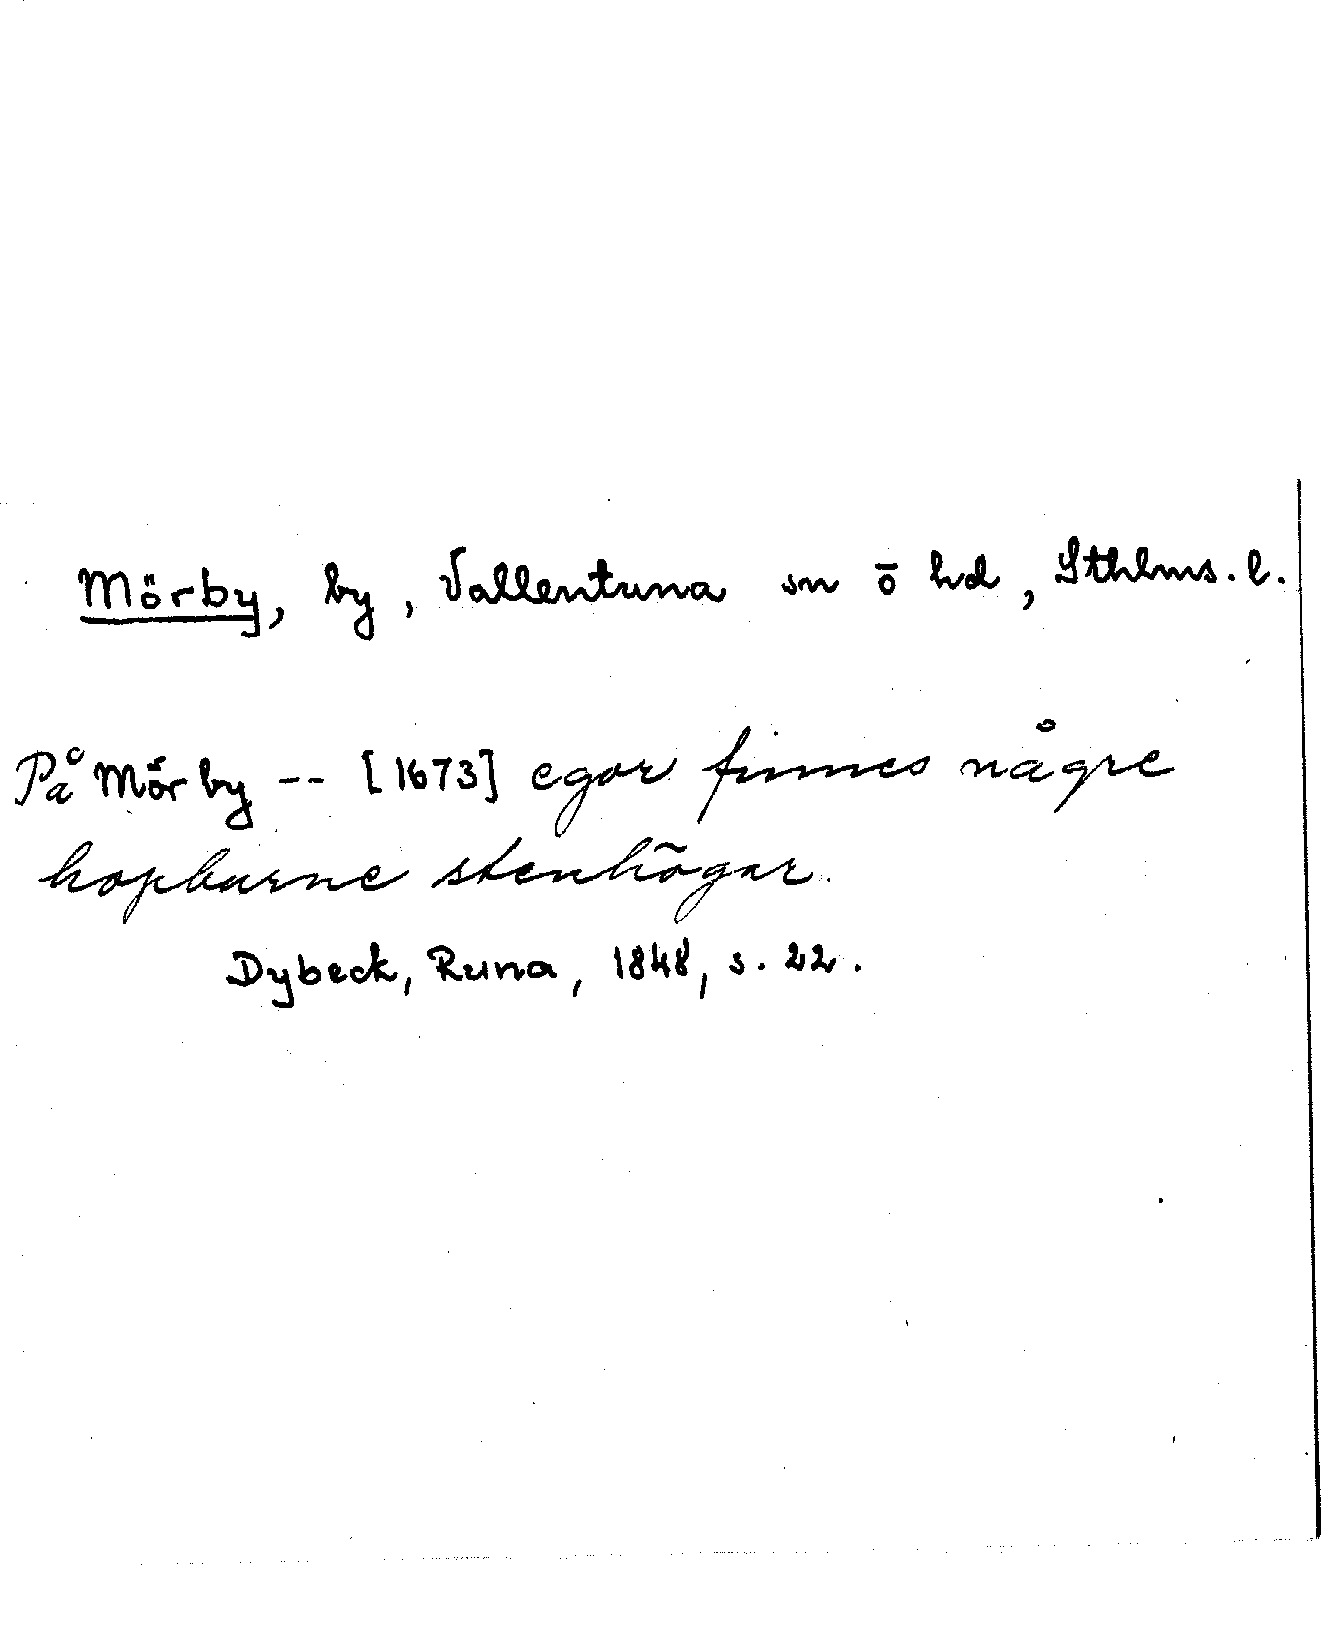 Mörby, by, Vallentuna sn ō hd, Sthlms. l.
På Mörby -- [1673] egor finnes någre
hopburne stenhögar.
Dybeck, Runa, 1848, s. 22.